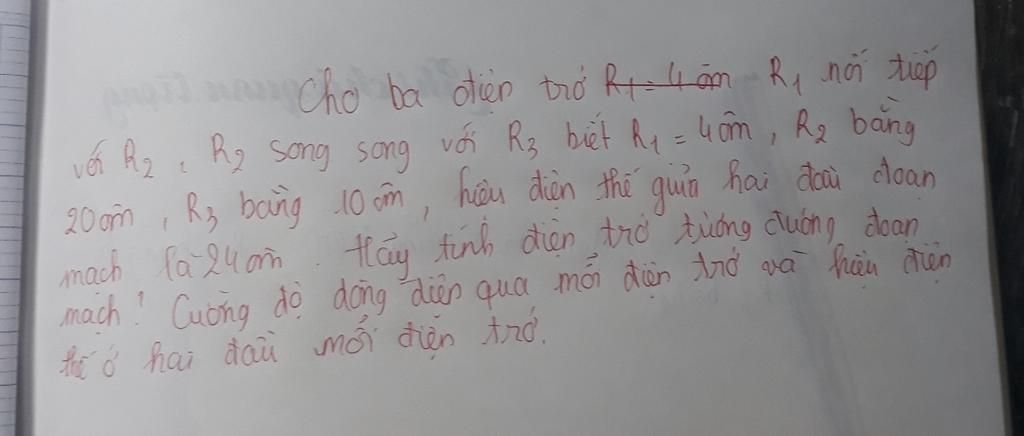 Cho ba điện trở R1 = 4 ôm R1 nối tiếp
với R2, R2 song song với R3 biết R1 = 4 ôm, R2 bằng
20 ôm, R3 bằng 10 ôm, hiệu điện thế giữa hai đầu đoạn
mạch là 24 ôm. Hãy tính điện trở tương đương đoạn
mạch! Cường độ dòng điện qua mỗi điện trở và hiệu điện
thế ở hai đầu mỗi điện trở.